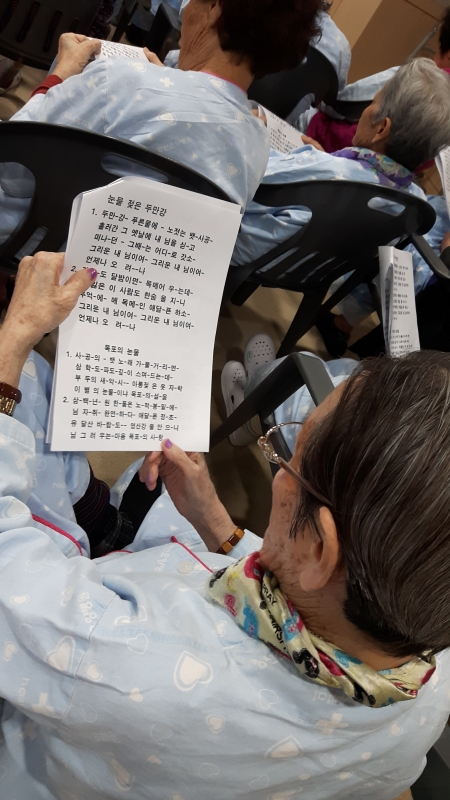 눈물 젖은 두만강
1. 두만-강- 푸른물에 - 노젓는 뱃-사공-
흘러간 그 옛날에 내 님을 싣-고
떠나-던 - 그배-는 어디-로 갓소-
그리운 내 님이여- 그리운 내 님이여-
언제나 오 려--나
2. 도 달밤이면- 목메어 우-는데-
잃은 이 사람도 한숨 을 지-니
추억-에- 해 목메-인 애달-픈 하소-
그리운 내 님이여- 그리운 내 님이여-
언제나 오 려--나
목포의 눈물
1. 사-공-의 - 뱃 노-래 가-물-가-리-면-
삼 학-도-파도-깊-이 스며-드는-데-
부 두의 새-악-시-- 아롱젖 은 옷 자-락
이 별 의 눈물-이냐 목포-의-설-움
2. 삼-백-년- 원 한-품은 노-적-봉-밑-에-
님 자-취- 완연-하-다- 애달-픈 정-조-
유 달산 바-람-도-- 영산강 을 안 으-니
님 그 려 우는-마음 목포-의 사-랑